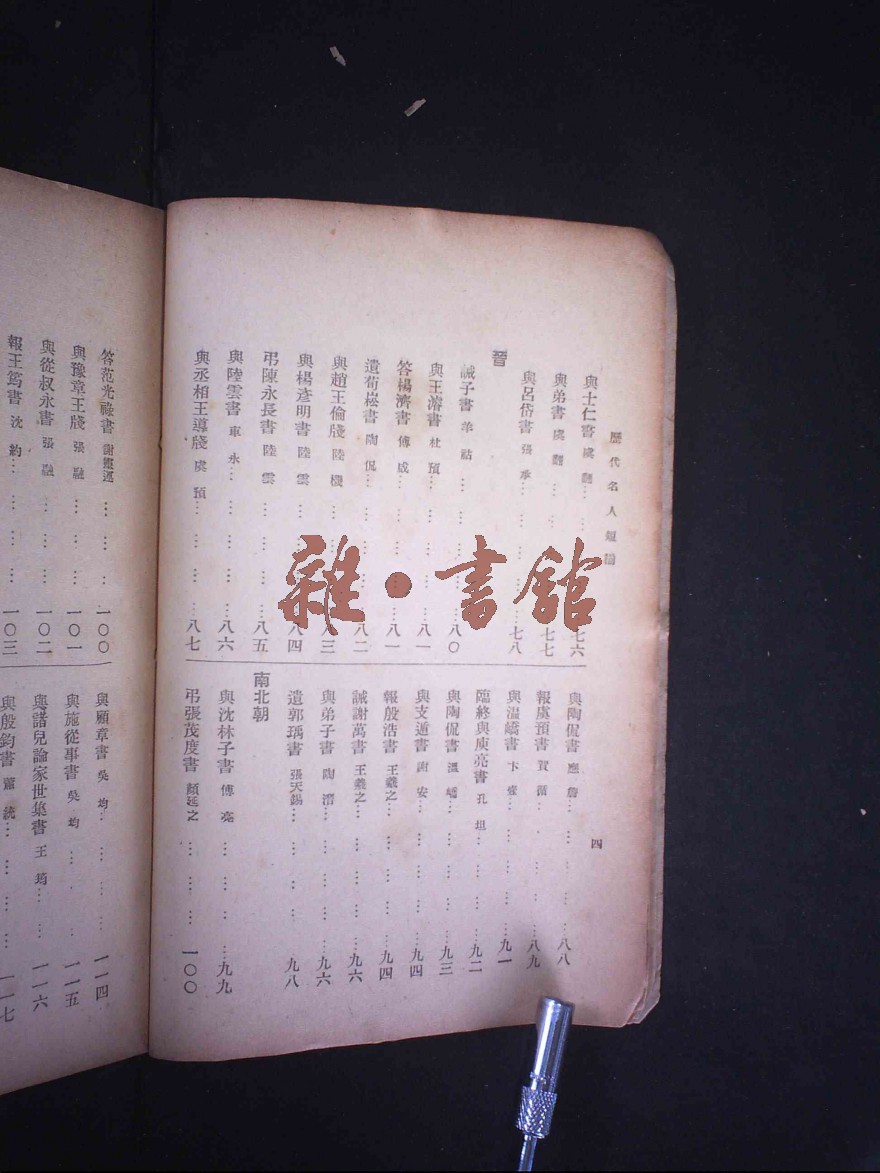 歷代名人短牋
四
與士仁書 虞翻 … … 七六
與弟書 虞翻 … … 七七
與呂岱書 張承 … … 七八
晉
誡子書 羊祜 … … 八〇
與王濬書 杜預 … … 八一
答楊濟書 傅咸 … … 八一
遺荀崧書 陶侃 … … 八二
與趙王倫牋 陸機 … … 八三
與楊彥明書 陸雲 … … 八四
弔陳永長書 陸雲 … … 八五
與陸雲書 車永 … … 八六
與丞相王導牋 虞預 … … 八七
與陶侃書 應詹 … … 八八
報虞預書 賀循 … … 八九
與溫嶠書 卞壼 … … 九一
臨終與庾亮書 孔坦 … … 九二
與陶侃書 溫嶠 … … 九三
與支遁書 謝安 … … 九四
報殷浩書 王羲之 … … 九四
誡謝萬書 王羲之 … … 九六
與弟子書 陶潛 … … 九六
遺郭瑀書 張天錫 … … 九八
南北朝
與沈林子書 傅亮 … … 九九
弔張茂度書 顏延之 … … 一〇〇
答范光祿書 謝靈運 … … 一〇〇
與豫章王牋 張融 … … 一〇一
與從叔永書 張融 … … 一〇二
報王筠書 沈約 … … 一〇三
與顧章書 吳均 … … 一一四
與施從事書 吳均 … … 一一五
與諸兒論家世集書 王筠 … … 一一六
與殷鈞書 蕭統 … … 一一七
雜·書館